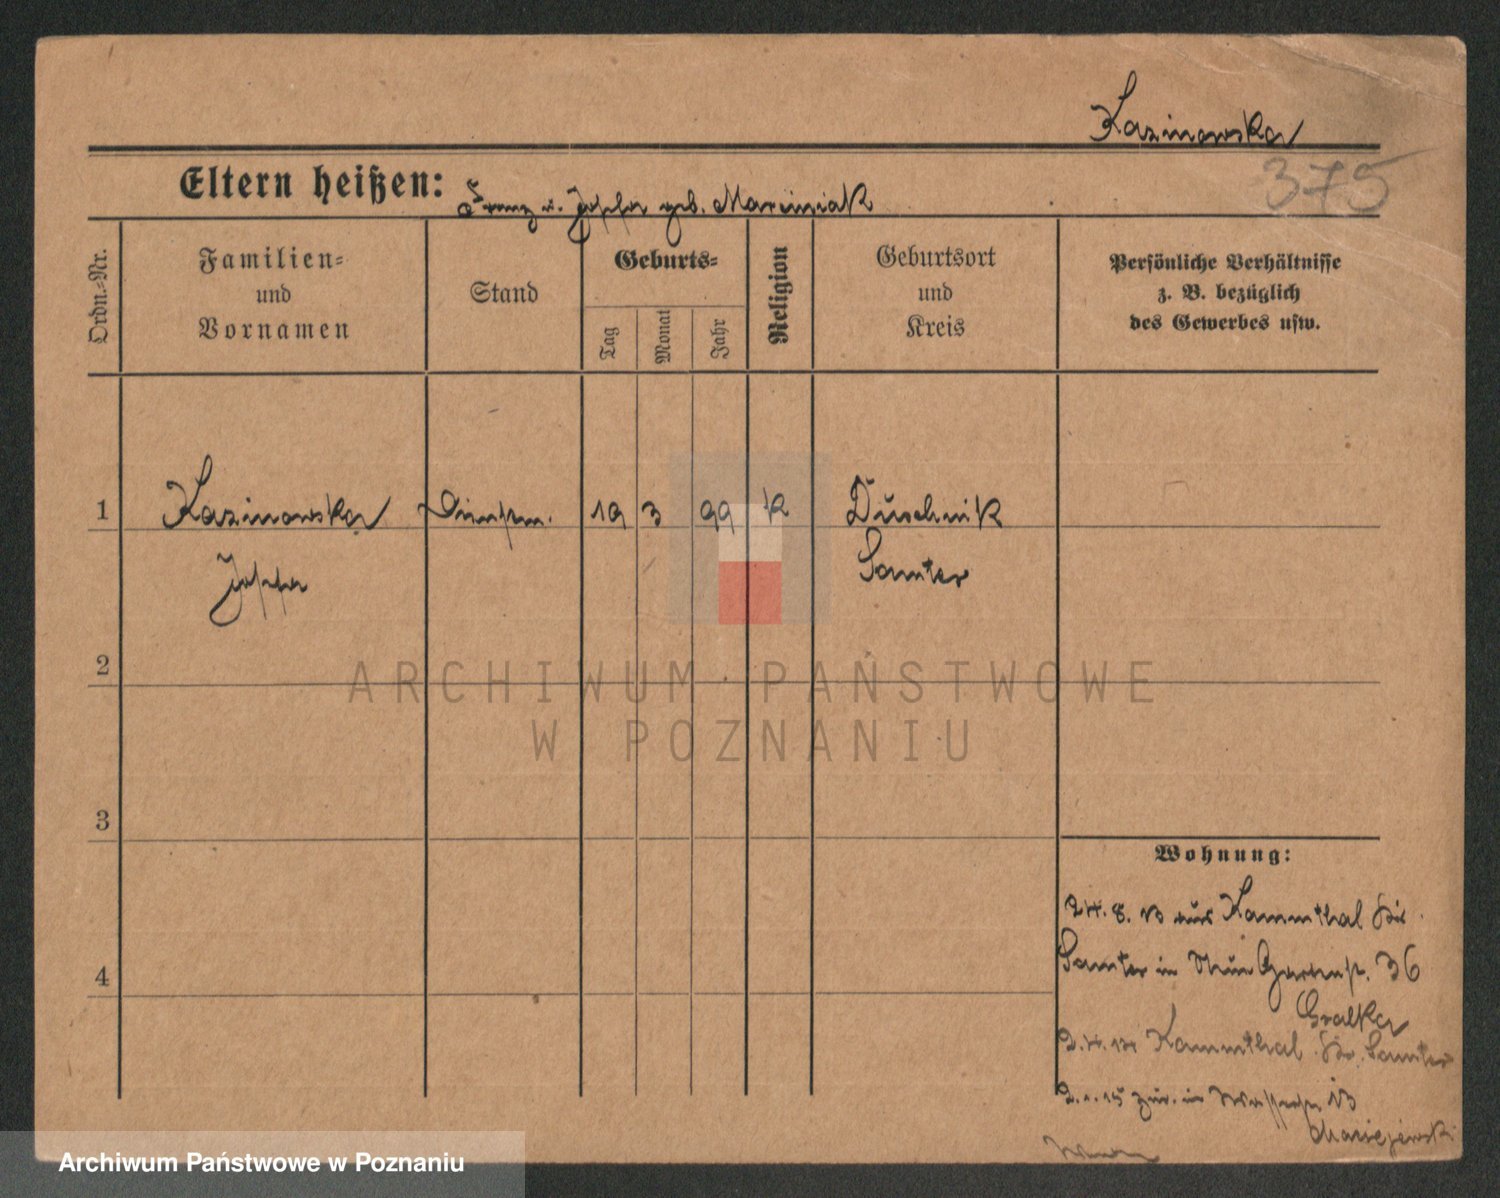 Kazinowska
375
Eltern heißen: Franz u. Josefa geb. Marciniak
Ordn.-Nr.
Familien-
und
Vornamen
Stand
Geburts-
Tag
Monat
Jahr
Religion
Geburtsort
und
Kreis
Persönliche Verhältnisse
z. B. bezüglich
des Gewerbes usw.
1 Kazinowska Dienstm. 19 3 99 K Duschnik
Josefa Samter
2
ARCHIWUM PAŃSTWOWE
W POZNANIU
3
Wohnung:
24. 8. 13 aus Kammthal Kr.
Samter in Gartenst. 36
Gralka
2.4.14 Kammthal Kr. Samter
2.1.15 zur. in 13
Maciejewski
4
Archiwum Państwowe w Poznaniu